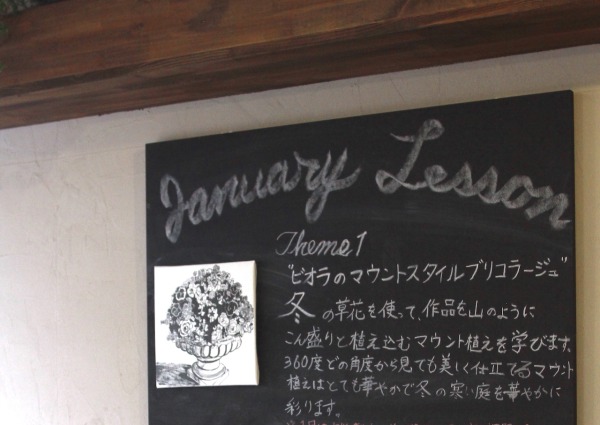 January Lesson
Theme1
"ビオラのマウントスタイルブリコラージュ"
冬の草花を使って、作品を山のように
こん盛りと植え込むマウント植えを学びます。
360度どの角度から見ても美しく仕立てるマウント
植えはとても華やかで冬の寂い庭を華やかに
彩ります。